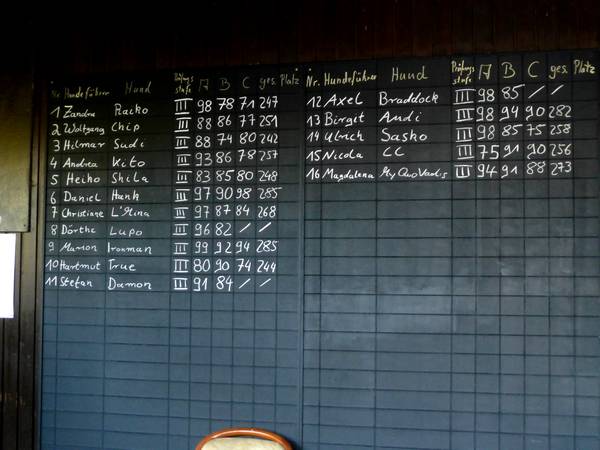 Nr. Hundeführer Hund Prüfungsstufe A B C ges. Platz
1 Zandra Racko III 98 78 71 247
2 Wolfgang Chip III 88 86 77 251
3 Hilmar Sudi III 88 74 80 242
4 Andrea Kito III 93 86 78 257
5 Heiko Shila III 83 85 80 248
6 Daniel Hank III 97 90 98 285
7 Christiane L'Nina III 97 87 84 268
8 Dörthe Lupo III 96 82 / /
9 Manon Ironman III 99 92 94 285
10 Hartmut True III 80 90 74 244
11 Stefan Damon III 91 84 / /
Nr. Hundeführer Hund Prüfungsstufe A B C ges. Platz
12 Axel Braddock III 98 85 / /
13 Birgit Andi III 98 94 90 282
14 Ulrich Sasko III 98 85 75 258
15 Nicola CC III 75 91 90 256
16 Magdalena My QuoVadis III 94 91 88 273